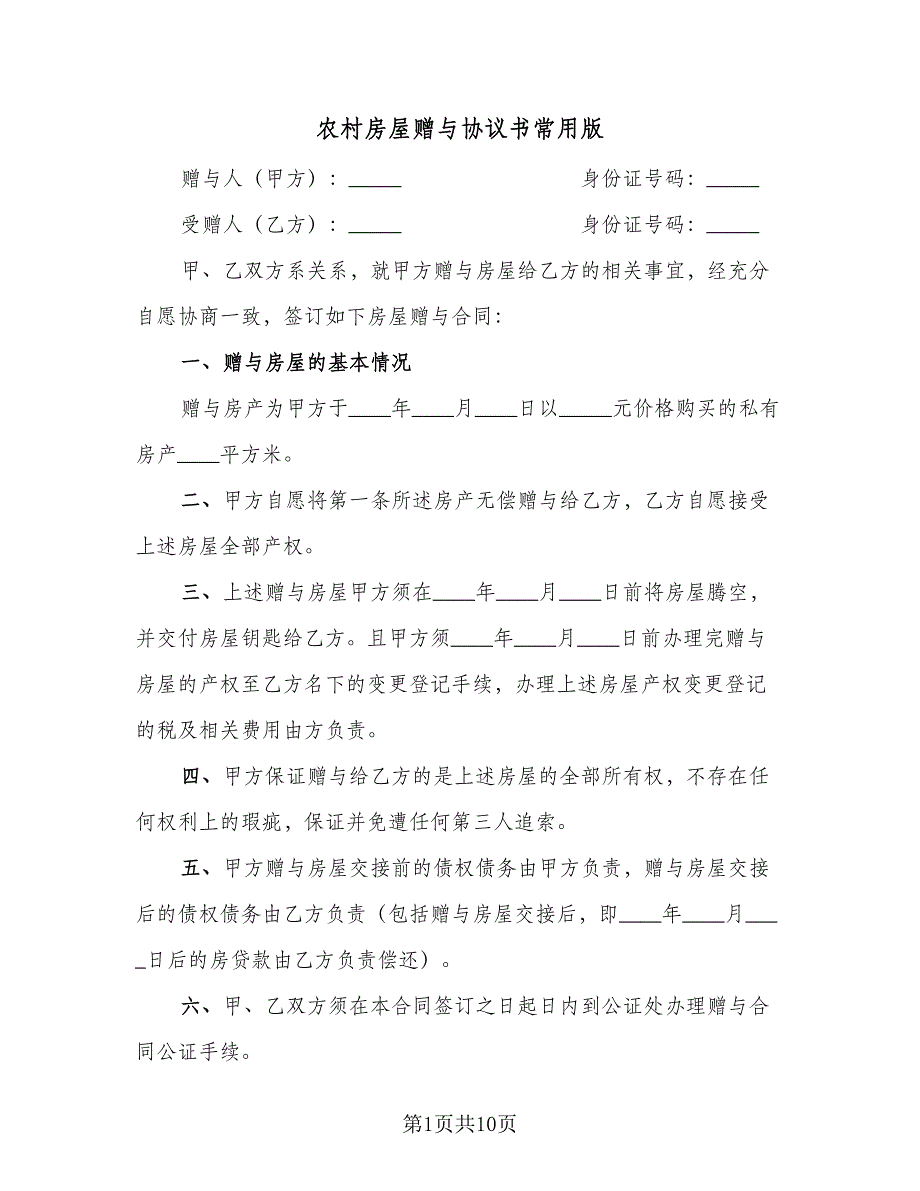 农村房屋赠与协议书常用版
赠与人（甲方）：_____ 身份证号码：_____
受赠人（乙方）：_____ 身份证号码：_____
甲、乙双方系关系，就甲方赠与房屋给乙方的相关事宜，经充分
自愿协商一致，签订如下房屋赠与合同：
一、赠与房屋的基本情况
赠与房产为甲方于____年____月____日以_____元价格购买的私有
房产____平方米。
二、甲方自愿将第一条所述房产无偿赠与给乙方，乙方自愿接受
上述房屋全部产权。
三、上述赠与房屋甲方须在____年____月____日前将房屋腾空，
并交付房屋钥匙给乙方。且甲方须____年____月____日前办理完赠与
房屋的产权至乙方名下的变更登记手续，办理上述房屋产权变更登记
的税及相关费用由方负责。
四、甲方保证赠与给乙方的是上述房屋的全部所有权，不存在任
何权利上的瑕疵，保证并免遭任何第三人追索。
五、甲方赠与房屋交接前的债权债务由甲方负责，赠与房屋交接
后的债权债务由乙方负责（包括赠与房屋交接后，即____年____月___
_日后的房贷款由乙方负责偿还）。
六、甲、乙双方须在本合同签订之日起日内到公证处办理赠与合
同公证手续。
第1页共10页